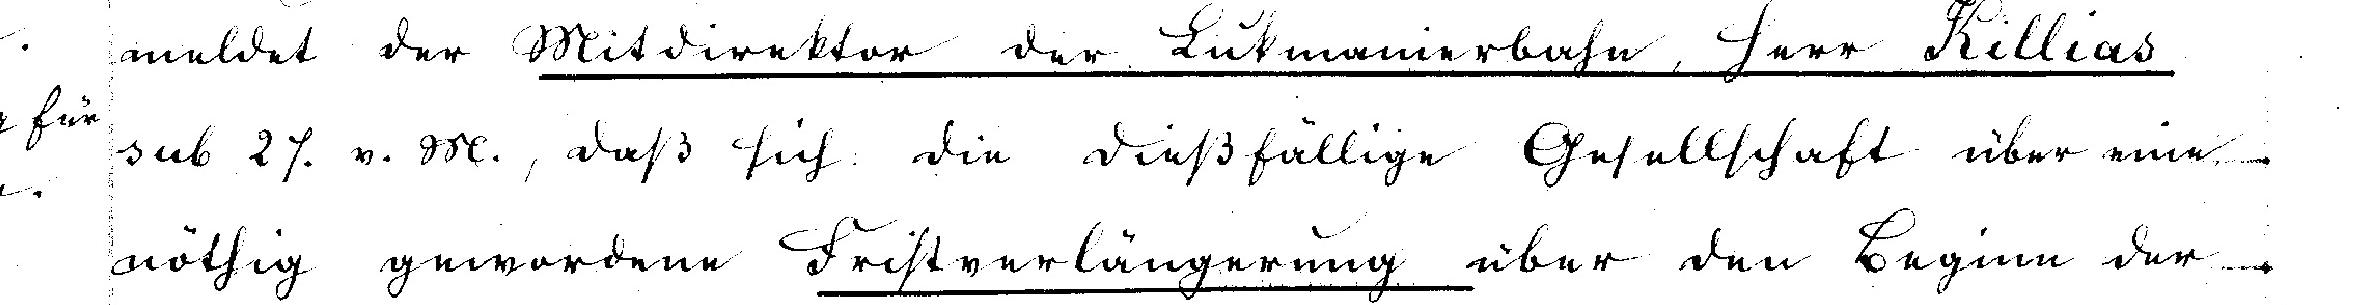 meldet der Mitdirektor der Lukmanierbahn, Herr Killias
für
sub 27. v. M., daß sich die dießfällige Gesellschaft über eine
nöthig gewordene Fristverlängerung über den Beginn der